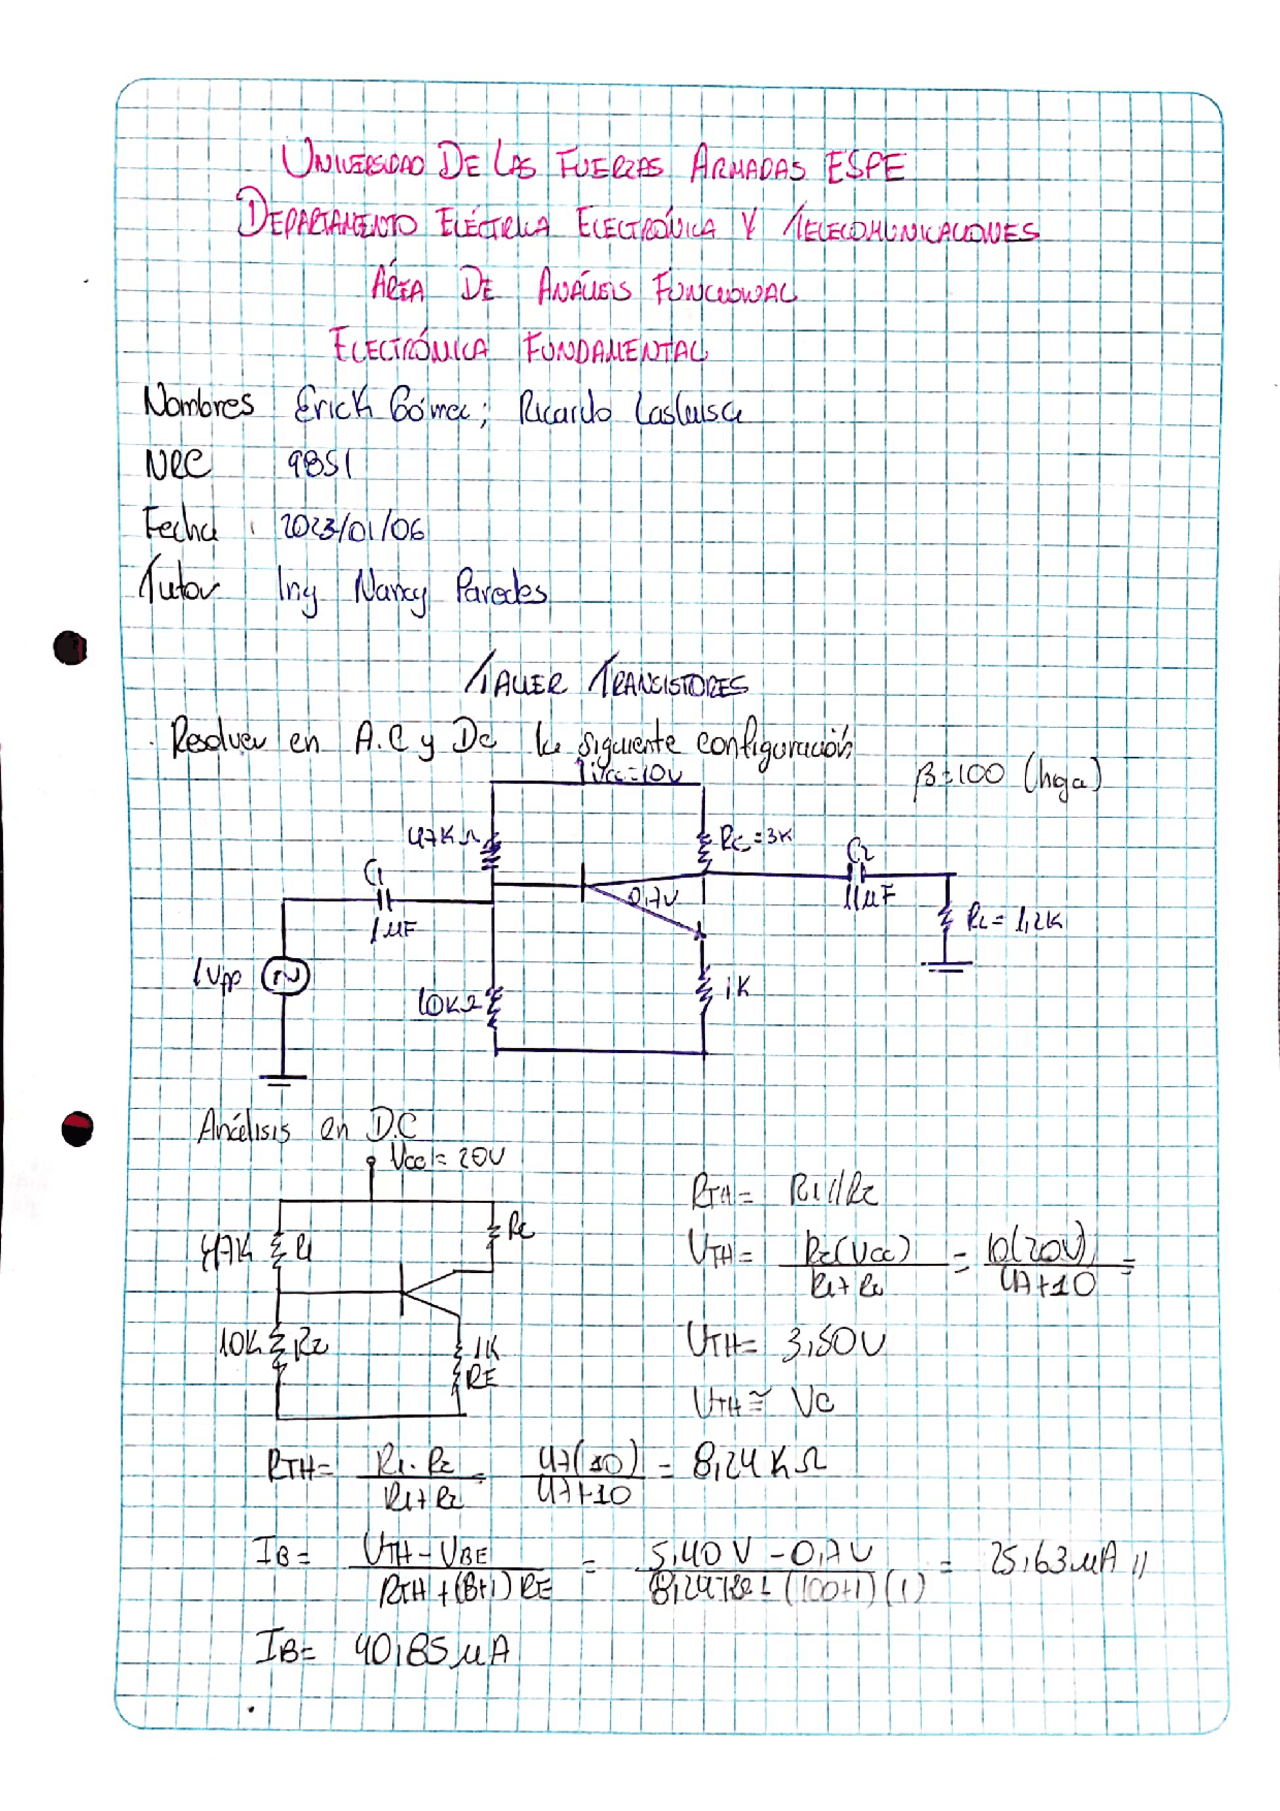 UNIVERSIDAD DE LAS FUERZAS ARMADAS ESPE
DEPARTAMENTO ELÉCTRICA ELECTRÓNICA Y TELECOMUNICACIONES
ÁREA DE ANÁLISIS FUNCIONAL
ELECTRÓNICA FUNDAMENTAL
Nombres Erick Gómez; Ricardo Lasluisa
NRC 9851
Fecha : 2023/01/06
Tutor Ing Nancy Paredes
TALLER TRANSISTORES
. Resolver en A.C y Dc la siguiente configuración
Vcc=10V β=100 (hoja)
47KΩ Rc=3K
C1 C2
0,7V 1μF
1μF RL=1,2K
1Vpp
10KΩ 1K
Análisis en D.C
Vcc=20V
RTH= R1//R2
47K R1 Rc
VTH= R2(Vcc) / R1+R2 = 10(20V) / 47+10 =
10K R2 1K RE
VTH= 3,50V
VTH≅ VC
RTH= R1.R2 / R1+R2 = 47(10) / 47+10 = 8,24KΩ
IB= VTH-VBE / RTH+(B+1)RE = 5,40V-0,7V / (100+1)(1) = 25,63μA //
IB= 40,85μA